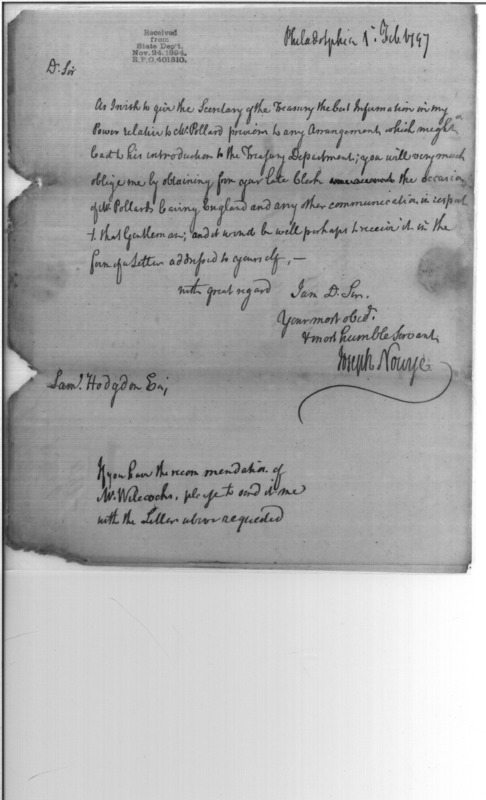 Received
from
State Dep't.
Nov. 24, 1894.
R.P.O, 401310.
Philadelphia 1st. Feb 1797
Dr. Sir
As I wish to give the Secretary of the Treasury the best Information in my
Power relative to Mr. Pollard previous to any Arrangement which might
lead to his introduction to the Treasury Department; you will very much
oblige me by obtaining from your late Clerk the occasion
of Mr. Pollard's leaving England and any other communication in respect
to that Gentleman; and it would be well perhaps to receive it in the
form of a Letter addressed to yourself, —
with great regard I am Dr. Sir.
Your most obedt.
& most humble Servant
Joseph Nourse
Saml. Hodgdon Esq;
If you have the recommendation of
Mr. Wilcocks, please to send it me
with the Letter above requested